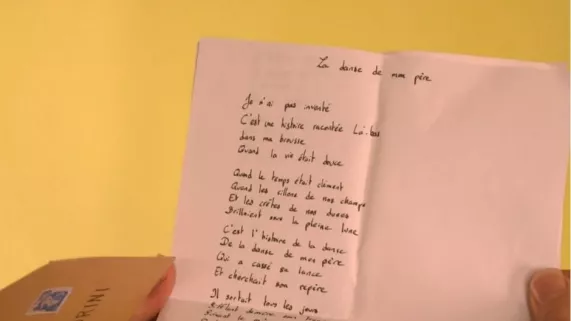 La danse de mon père
Je n'ai pas inventé
C'est une histoire racontée Là-bas
dans ma brousse
Quand la vie était douce
Quand le temps était clément
Quand les sillons de nos champs
Et les crêtes de nos dunes
Brillaient sous la pleine lune
C'est l'histoire de la danse
De la danse de mon père
Qui a cassé sa lance
Et cherchait son repère
Il sortait tous les jours
RINI